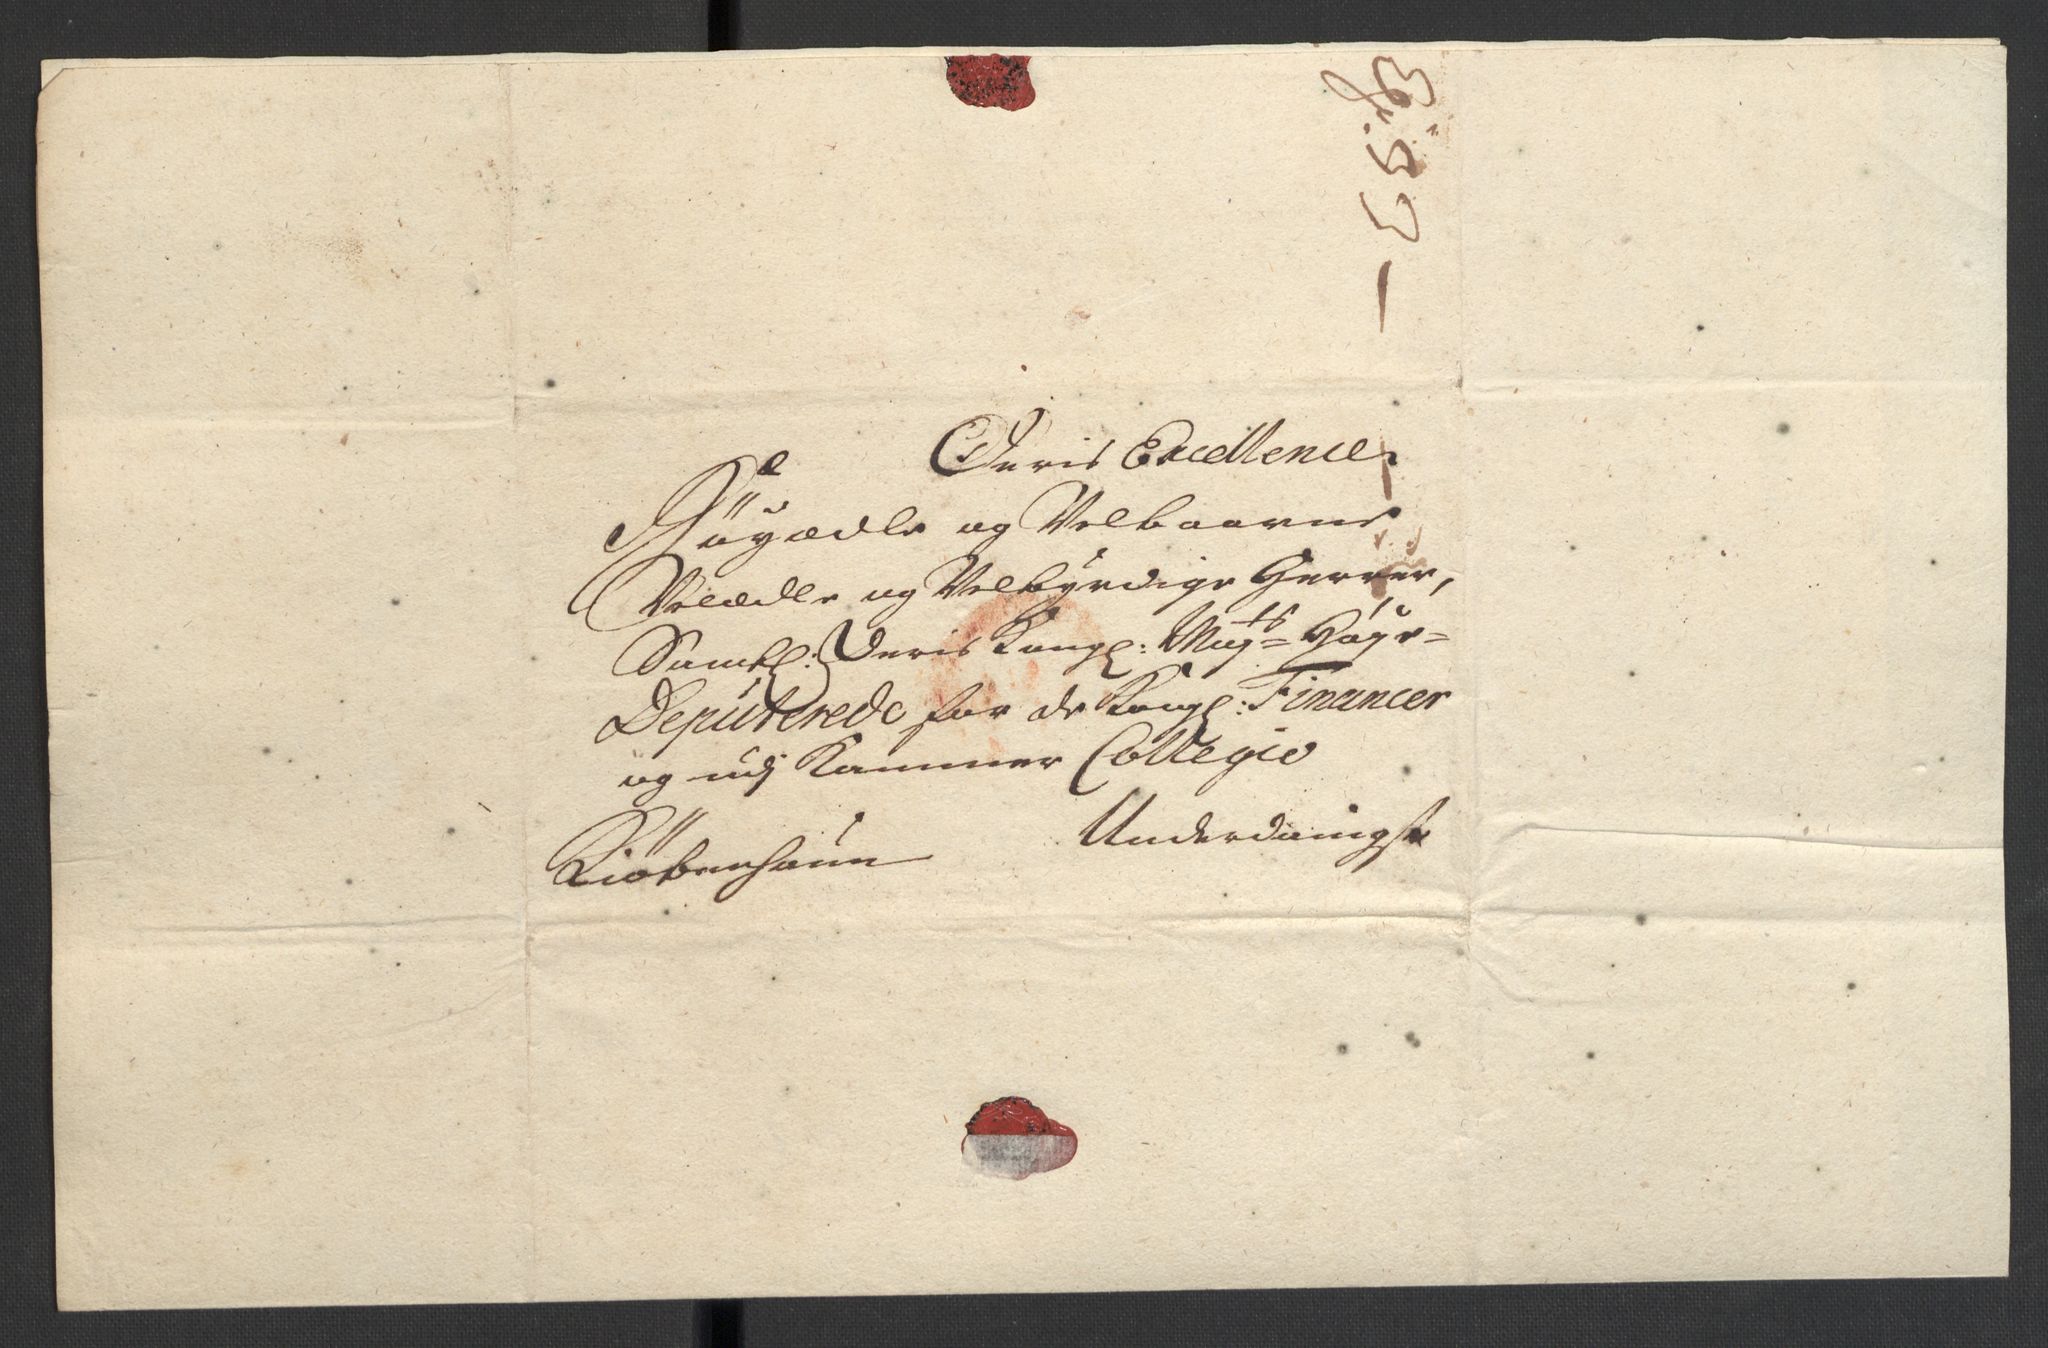 Deris Excellence
Höyædle og Velbaarne
Velædle og Velbyrdige Herrer,
Samtl: Deris Kongl: Mayts Höye=
Deputerede for de Kongl: Financer
og udj Kammer Collegio
Underdanigst
Kiøbenhaun